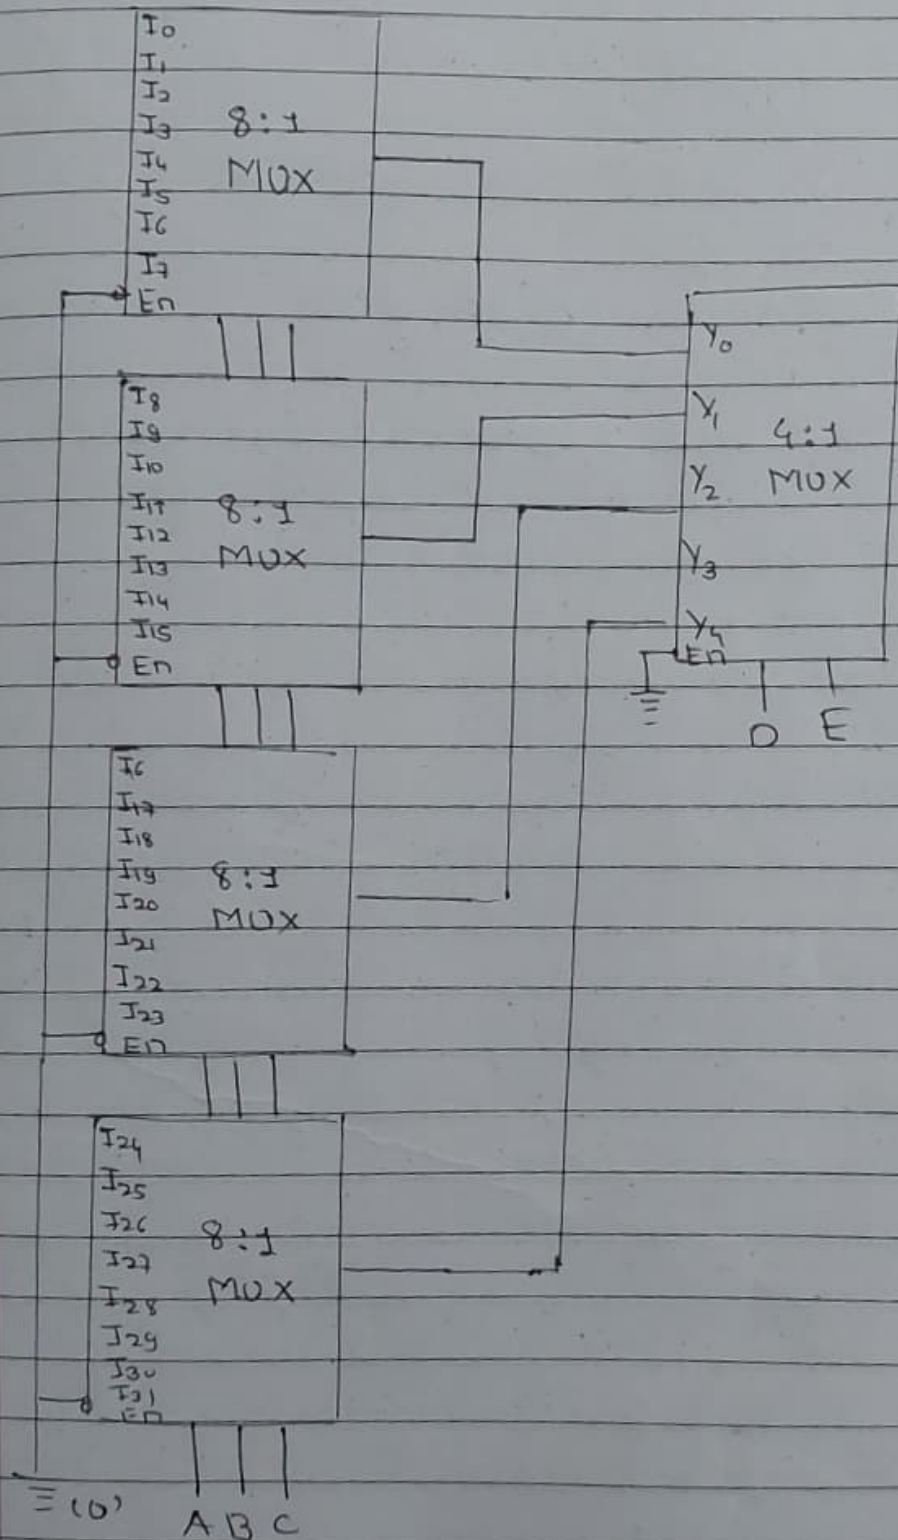 I0
I1
I2
I3
I4
I5
I6
I7
En
8:1
MUX
I8
I9
I10
I11
I12
I13
I14
I15
En
8:1
MUX
I6
I17
I18
I19
I20
I21
I22
I23
En
8:1
MUX
I24
I25
I26
I27
I28
I29
I30
I31
En
8:1
MUX
(0)
A B C
Y0
Y1
Y2
Y3
Y4
En
4:1
MUX
D E